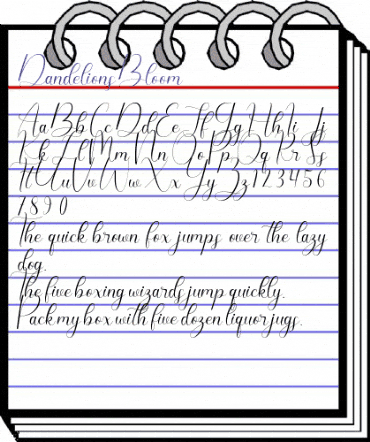 Dandelions Bloom
Aa Bb Cc Dd Ee Ff Gg Hh Ii Jj
Kk Ll Mm Nn Oo Pp Qq Rr Ss
Tt Uu Vv Ww Xx Yy Zz 1 2 3 4 5 6
7 8 9 0
The quick brown fox jumps over the lazy
dog.
The five boxing wizards jump quickly.
Pack my box with five dozen liquor jugs.